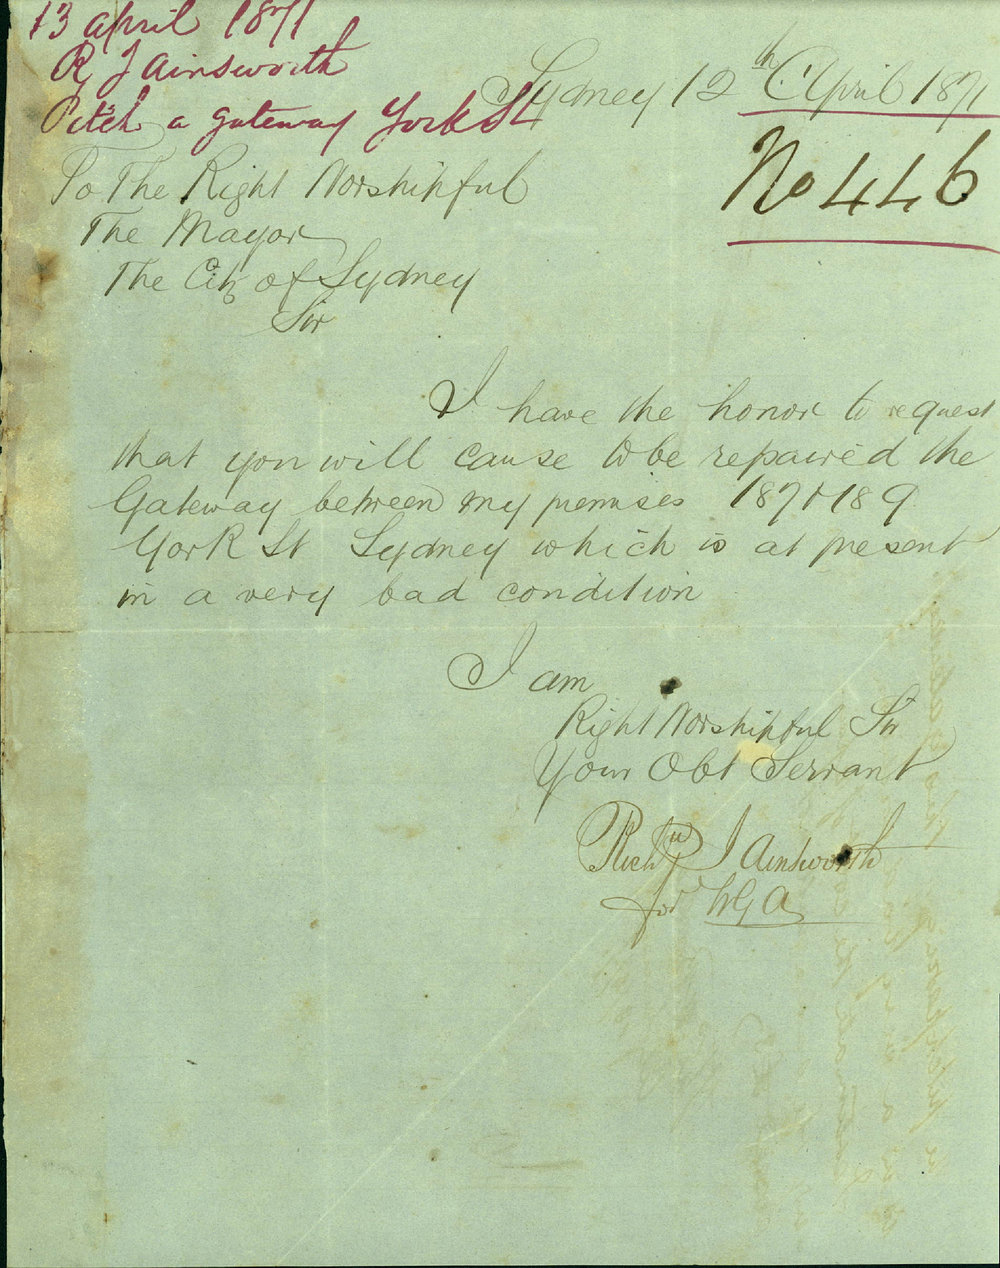 13 april 1871
R J Ainsworth
Pitch a gateway York St
Sydney 12th April 1871
No 446
To The Right Worshipful
The Mayor
The City of Sydney
Sir
I have the honor to request
that you will cause to be repaired the
Gateway between my premises 187 & 189
York St Sydney which is at present
in a very bad condition
I am
Right Worshipful Sir
Your Obt Servant
Richd J Ainsworth
for WGA